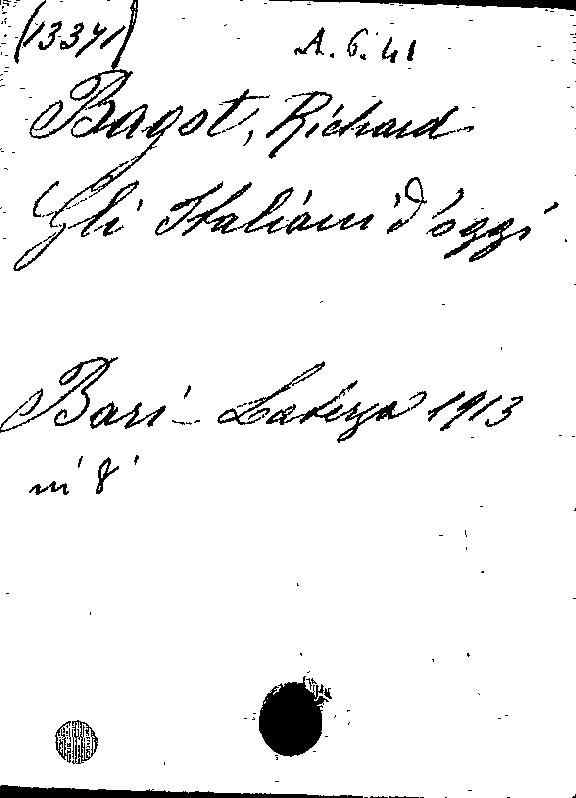 (13371) A. 6. 41
Bagot, Richard
Gli Italiani d'oggi
Bari - Laterza 1913
in 8°